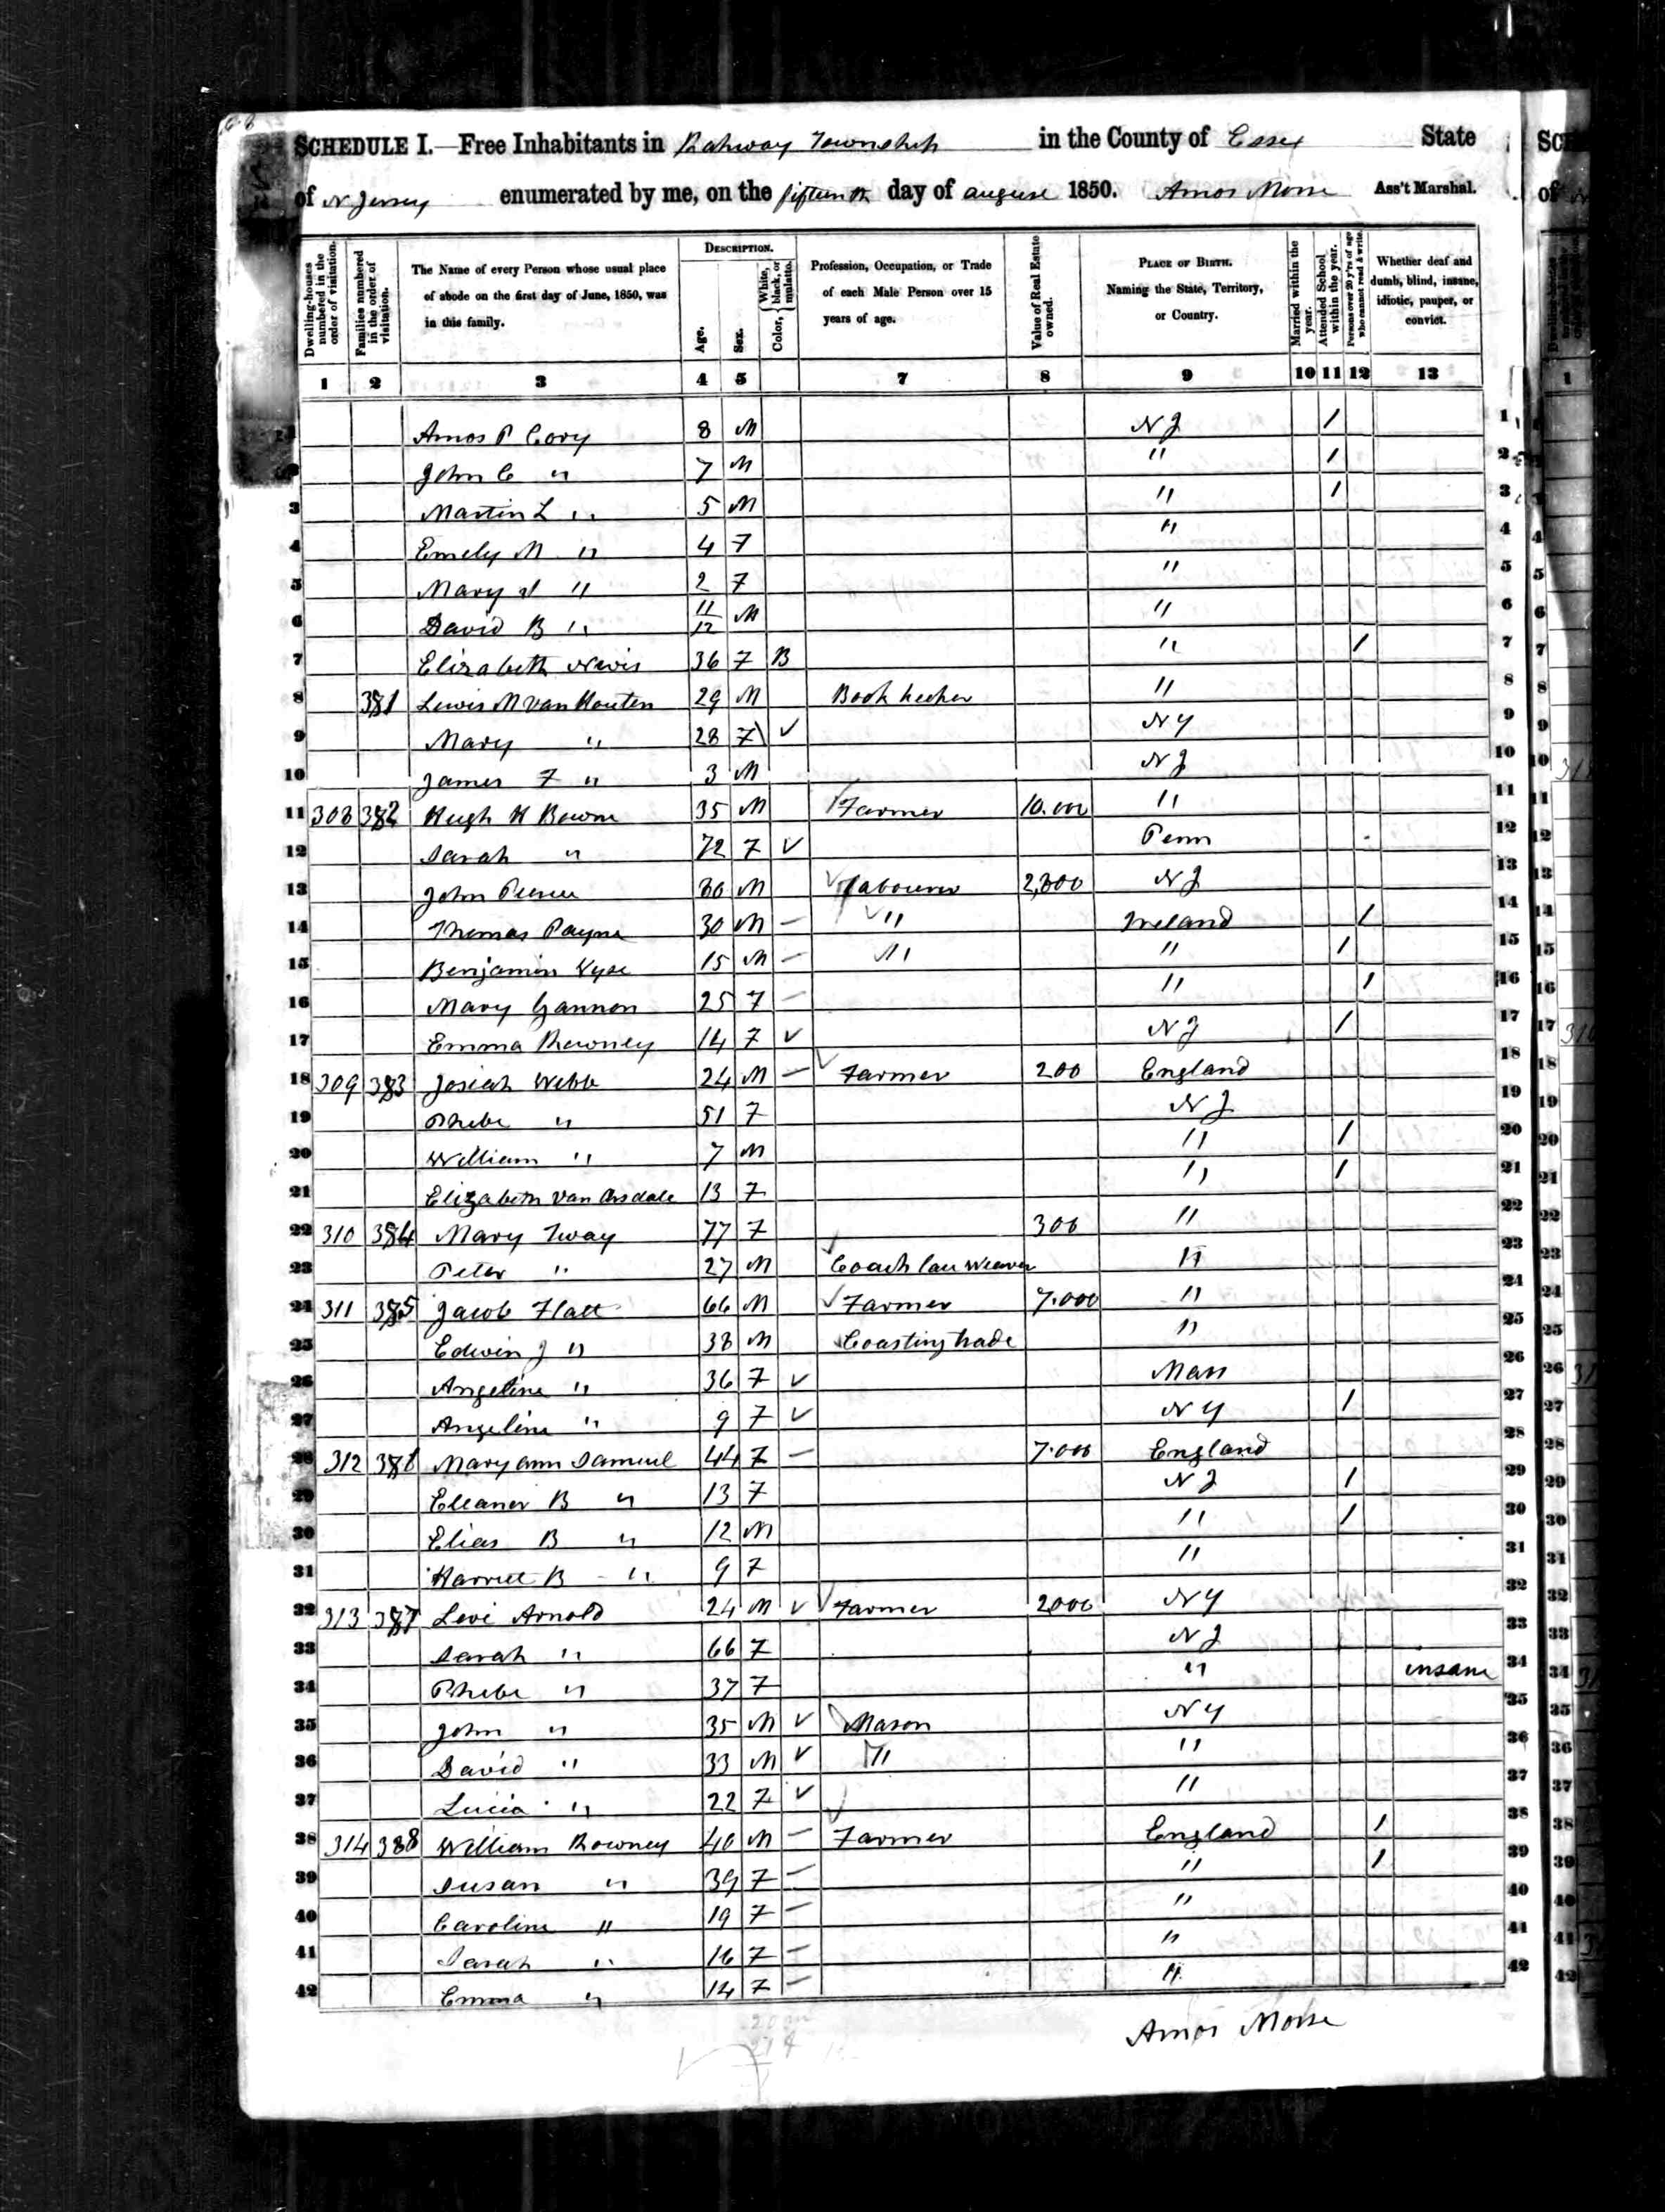 SCHEDULE I.—Free Inhabitants in Rahway Township in the County of Essex State
of N Jersey enumerated by me, on the fifteenth day of august 1850. Amos Morse Ass't Marshal.
Dwelling-houses numbered in the order of visitation.
Families numbered in the order of visitation.
The Name of every Person whose usual place of abode on the first day of June, 1850, was in this family.
DESCRIPTION.
Age.
Sex.
Color, { White, black, or mulatto.
Profession, Occupation, or Trade of each Male Person over 15 years of age.
Value of Real Estate owned.
PLACE OF BIRTH. Naming the State, Territory, or Country.
Married within the year.
Attended School within the year.
Persons over 20 y'rs of age who cannot read & write.
Whether deaf and dumb, blind, insane, idiotic, pauper, or convict.
1 2 3 4 5 7 8 9 10 11 12 13
Amos P Cory 8 M N J / 1
John C " 7 M " / 2
3 Martin L " 5 M " / 3
4 Emely M " 4 F " 4
5 Mary J " 2 F " 5
6 David B " 11/12 M " 6
7 Elizabeth Nevis 36 F B " / 7
8 381 Lewis M Van Houten 29 M Book keeper " 8
9 Mary " 28 F ✓ N Y 9
10 James F " 3 M N J 10
11 308 382 Hugh H Bowne 35 M Farmer 10.000 " 11
12 Sarah " 72 F ✓ Penn 12
13 John 30 M Labourer 2,300 N J 13
14 Thomas Payne 30 M — " Ireland / 14
15 Benjamin Vyse 15 M — " " / 15
16 Mary Gannon 25 F — " / 16
17 Emma Rowney 14 F ✓ N J / 17
18 309 383 Josiah Webb 24 M — Farmer 200 England 18
19 Phebe " 51 F N J 19
20 William " 7 M " / 20
21 Elizabeth Van Arsdale 13 F " / 21
22 310 384 Mary Tway 77 F 300 " 22
23 Peter " 27 M Coach lace Weaver " 23
24 311 385 Jacob Flatt 66 M Farmer 7.000 " 24
25 Edwin J " 38 M Coasting trade " 25
26 Angeline " 36 F ✓ Mass 26
27 Angeline " 9 F ✓ N Y / 27
28 312 386 Mary ann Samuel 44 F — 7.000 England 28
29 Eleaner B " 13 F N J / 29
30 Elias B " 12 M " / 30
31 Harriet B " 9 F " 31
32 313 387 Levi Arnold 24 M ✓ Farmer 2000 N Y 32
33 Sarah " 66 F N J 33
34 Phebe " 37 F " insane 34
35 John " 35 M ✓ Mason N Y 35
36 David " 33 M ✓ " " 36
37 Lucia " 22 F ✓ " 37
38 314 388 William Rowney 40 M — Farmer England / 38
39 Susan " 39 F — " / 39
40 Caroline " 19 F — " 40
41 Sarah " 16 F — " 41
42 Emma " 14 F — " 42
Amos Morse